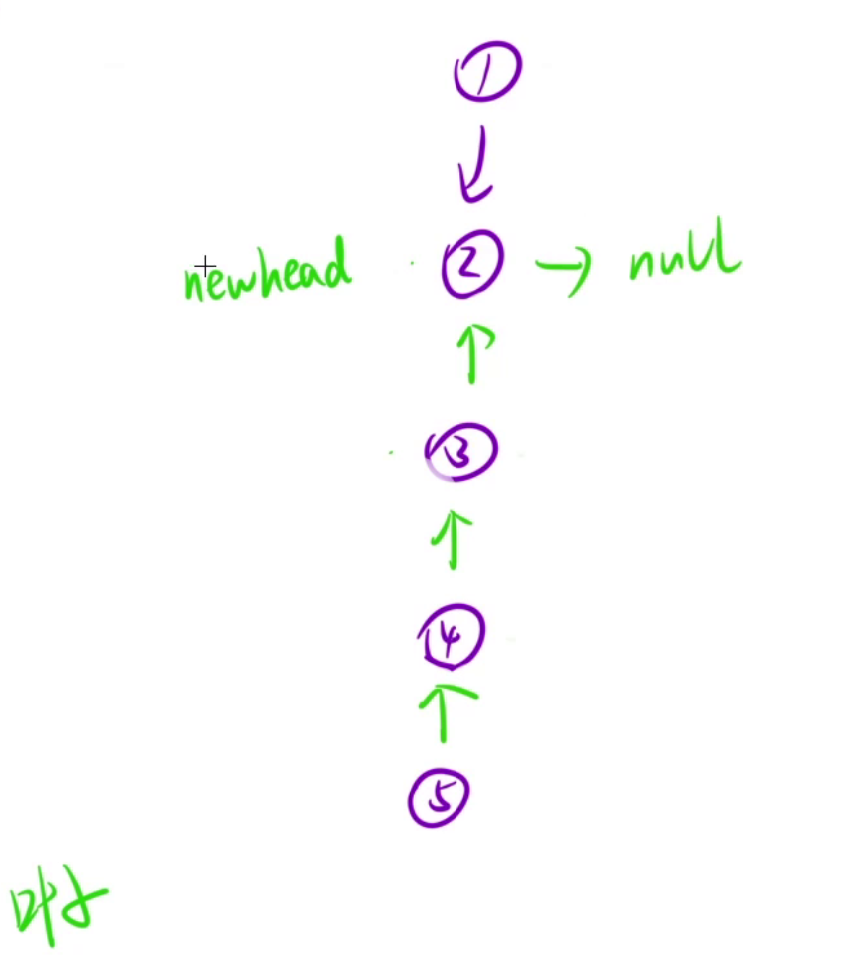 1
newhead 2 → null
3
4
5